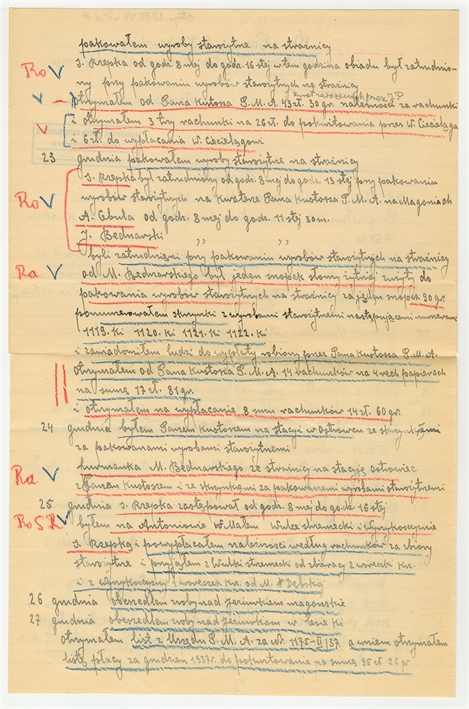 pakowałem wyroby starożytne na strażnicy
Ro V J. Rzepka od godz. 8 mej do godz. 16 stej w tem godzina obiadu był zatrudnio-
ny przy pakowaniu wyrobów starożytnych na strażnicy
V otrzymałem od Pana Kustosza P.M.A. 43 zł. 30 gr. należność za rachunki
V i otrzymałem 3 trzy rachunki na 26 zł. do pokwitowania przez W. Cieciełąga
i 6 zł. do wypłacenia W. Cieciełągowi
23 grudnia pakowałem wyroby starożytne na strażnicy
J. Rzepka był zatrudniony od godz. 8 mej do godz. 13 stej przy pakowaniu
Ro V wyrobów starożytnych na kwaterze Pana Kustosza P.M.A. na Magoniach
A. Cebula od godz. 8 mej do godz. 11 stej 30 m.
J. Bednarski ,, ,,
byli zatrudnieni przy pakowaniu wyrobów starożytnych na strażnicy
Ra V od M. Bednarskiego był jeden snopek słomy żytniej zużyty do
pakowania wyrobów starożytnych na strażnicy za jeden snopek 90 gr.
ponumerowałem skrzynki z wyrobami starożytnemi następującemi numerami
1119. ki 1120. ki 1121. ki 1122. ki
i zawiadomiłem ludzi do wypłaty robiony przez Pana Kustosza P.M.A.
otrzymałem od Pana Kustosza P.M.A. 14 rachunków na 4 rech papierach
na sumę 17 zł. 81 gr.
i otrzymałem na wypłacanie 8 miu rachunków 14 zł. 60 gr.
24 grudnia byłem z Panem Kustoszem na stacyi w Ostrowcu ze skrzynkami
za pakowanami wyrobami starożytnemi
Ra V furmanka M. Bednarskiego ze strażnicy na stację Ostrowiec
z Panem Kustoszem i ze skrzynkami za pakowanemi wyrobami starożytnemi
25 grudnia J. Rzepka zastępował od godz. 8 mej do godz. 16 stej
Ro S R V byłem na Antoniowie W. Małem Wulce stremecki i Wyrykoczynie
J. Rzepka i powypłacałem należności według rachunków za zbiory
starożytne i przyjąłem z Wulki strzemecki od zbieracy 2 woreczki krz.
i z Wyrykoczyny 1 woreczek krz. od M.
26 grudnia obszedłem roby nad Jezinrkiem magońskie
27 grudnia obszedłem roby nad Jeziorkiem w lesie ki
otrzymałem list z Urzędu P.M.A. za Nr. 1175-II/37.
listę płacy za grudzień 1937r. do pokwitowania na sumę 95 zł. 25 gr.